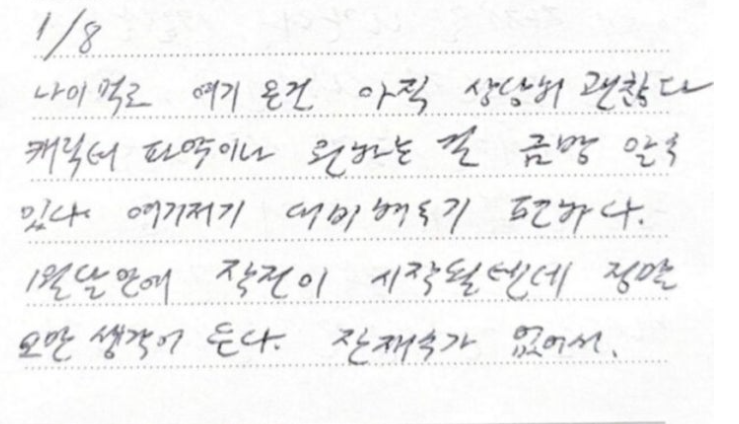 1/8
나이먹고 여기 온건 아직 상당히 괜찮다
캐릭터 파악이나 원하는 걸 금방 알 수
있다. 여기저기 대비해두기 편하다.
1월달안에 작전이 시작될텐데 정말
오만 생각이 든다. 잔재주가 없어서.